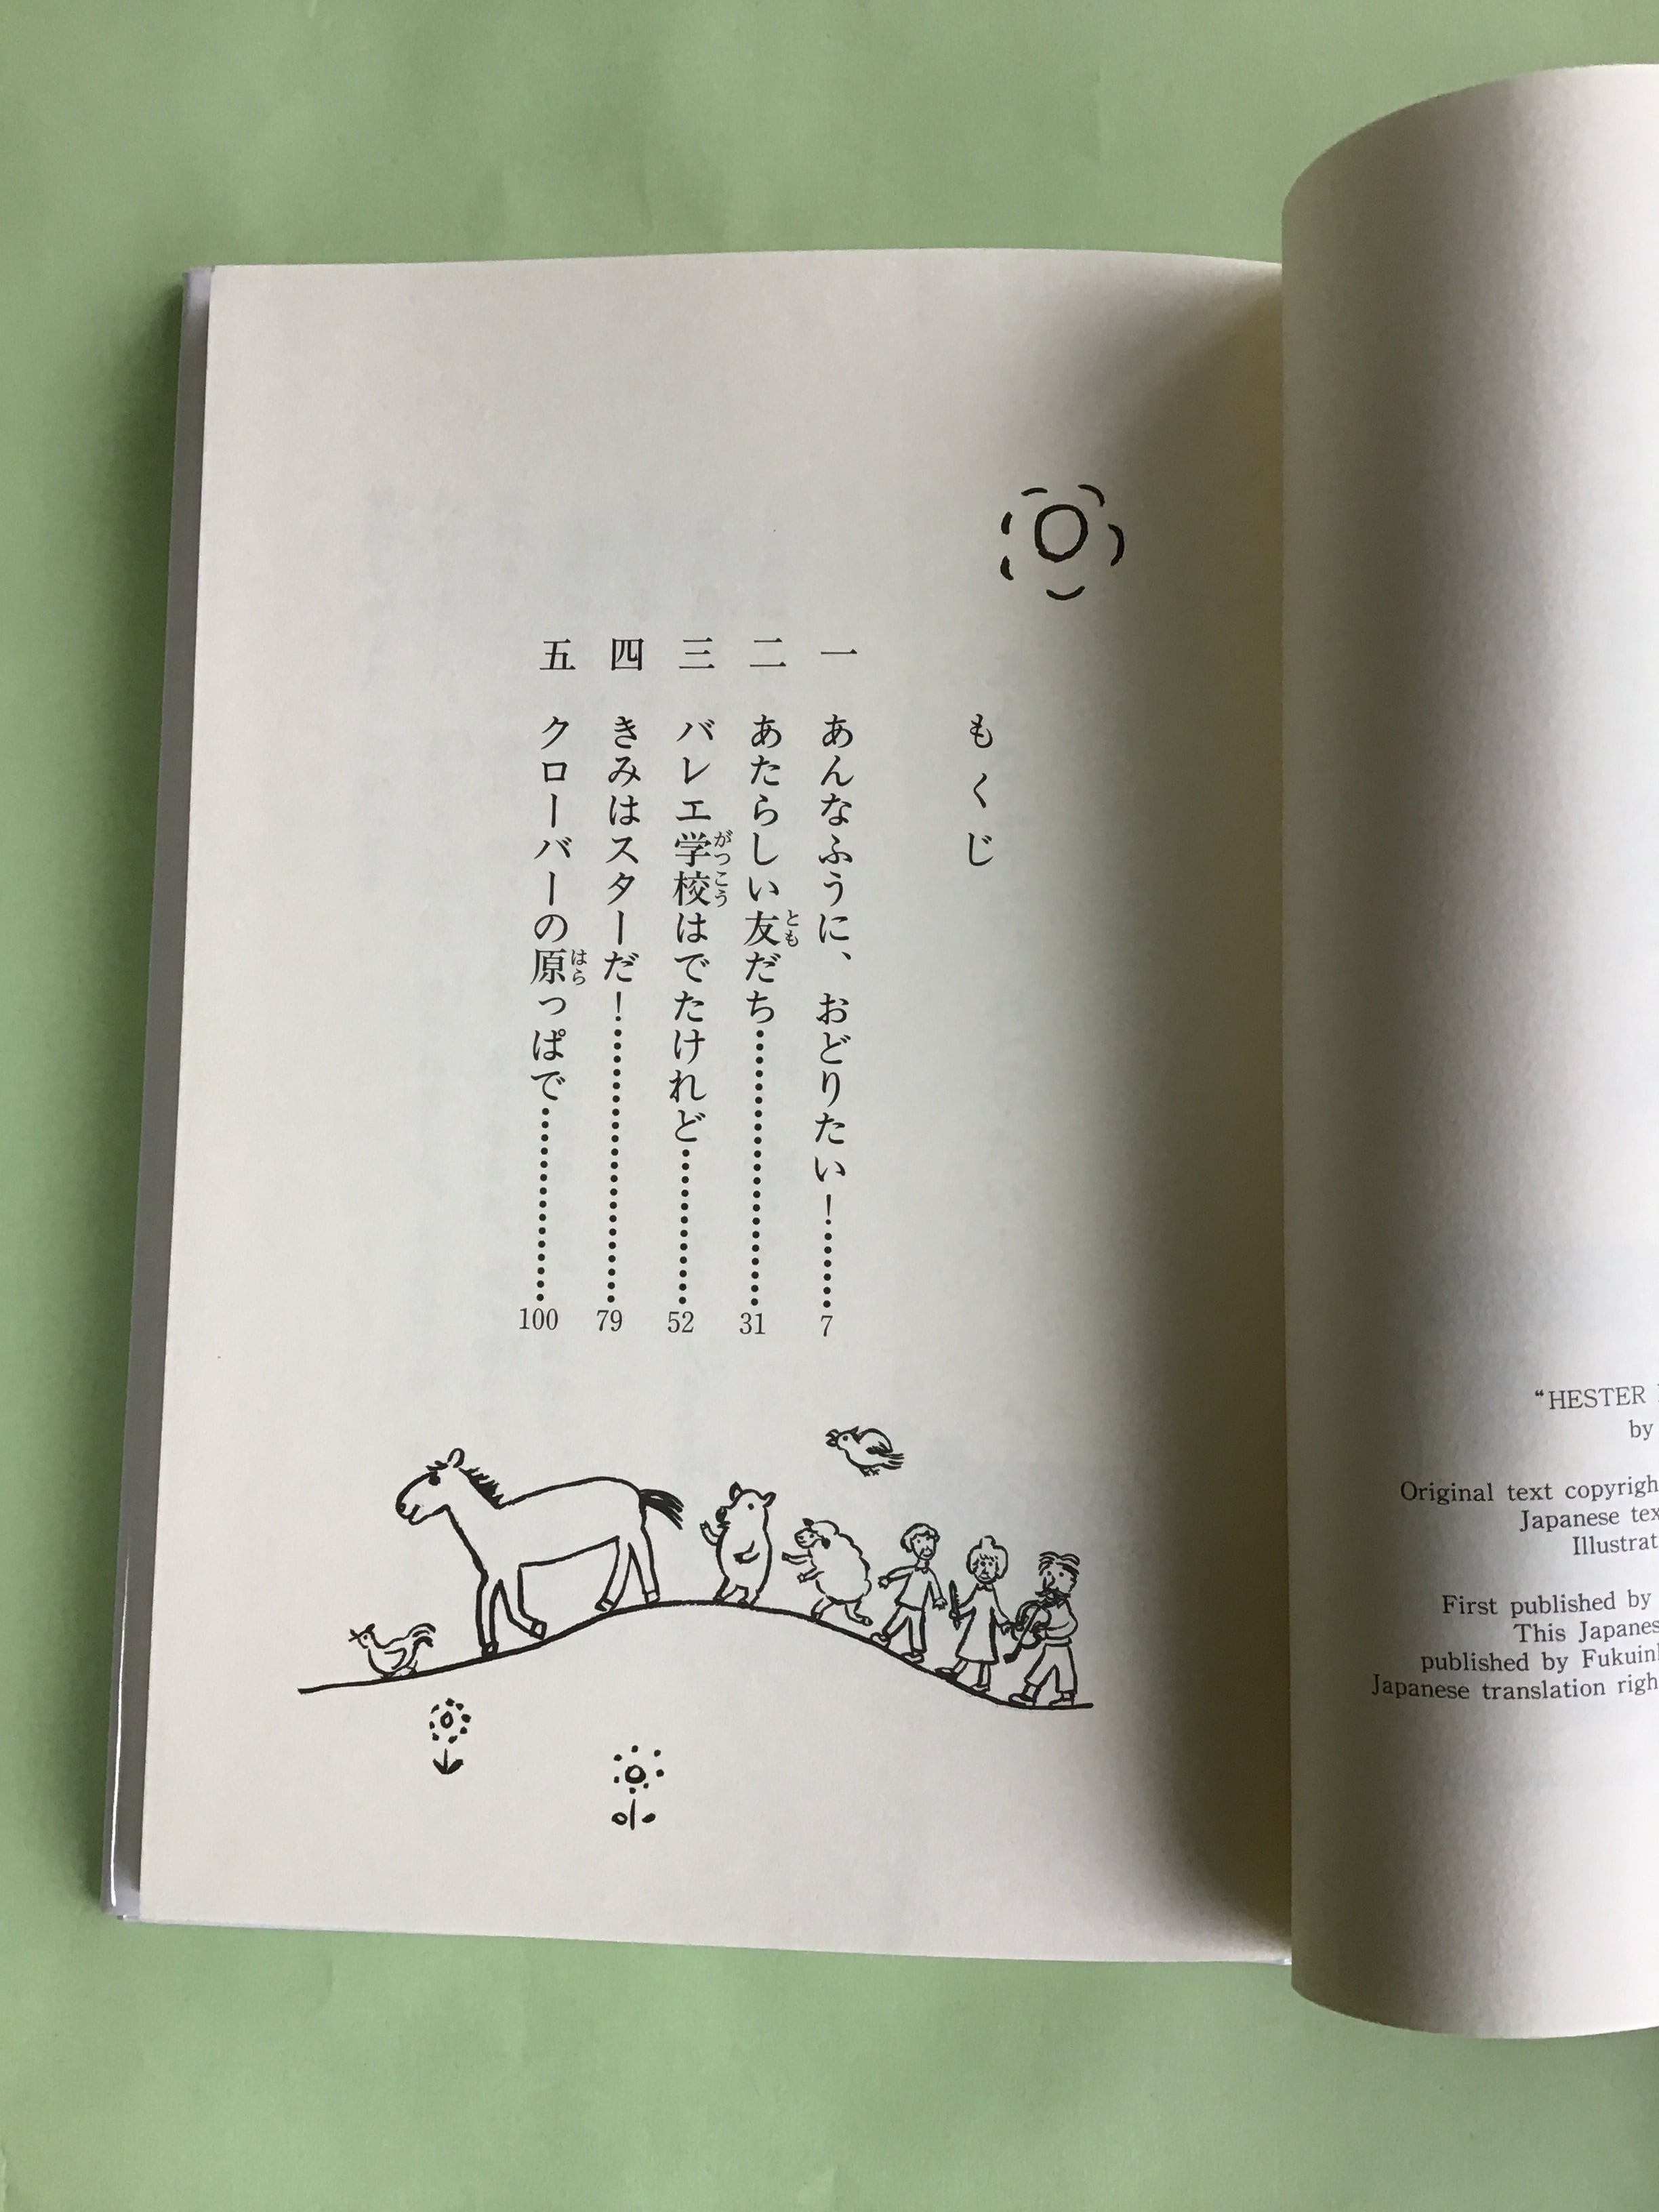 もくじ
一 あんなふうに、おどりたい！………7
二 あたらしい友だち………31
三 バレエ学校はでたけれど………52
四 きみはスターだ！………79
五 クローバーの原っぱで………100
“HESTER
by
Original text
Japanese
First published by
This
published by
Japanese translation